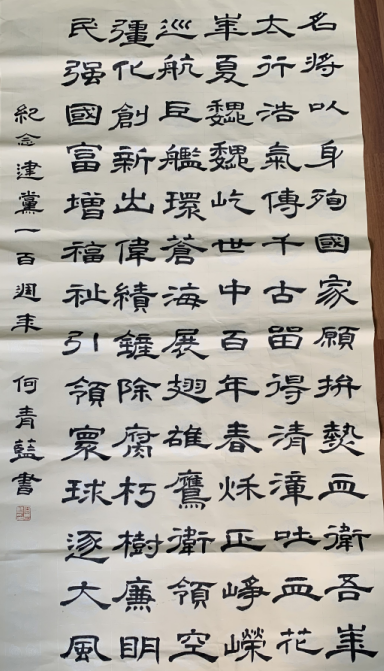 名將以身殉國家願拚熱血衛吾華
太行浩氣傳千古留得清漳吐血花
華夏巍巍屹世中百年春秋正崢嶸
巡航巨艦環蒼海展翅雄鷹衛領空
彊化創新出偉績鏟除腐朽樹廉明
民强國富增福祉引領寰球逐大風
紀念建黨一百週年 何青藍書